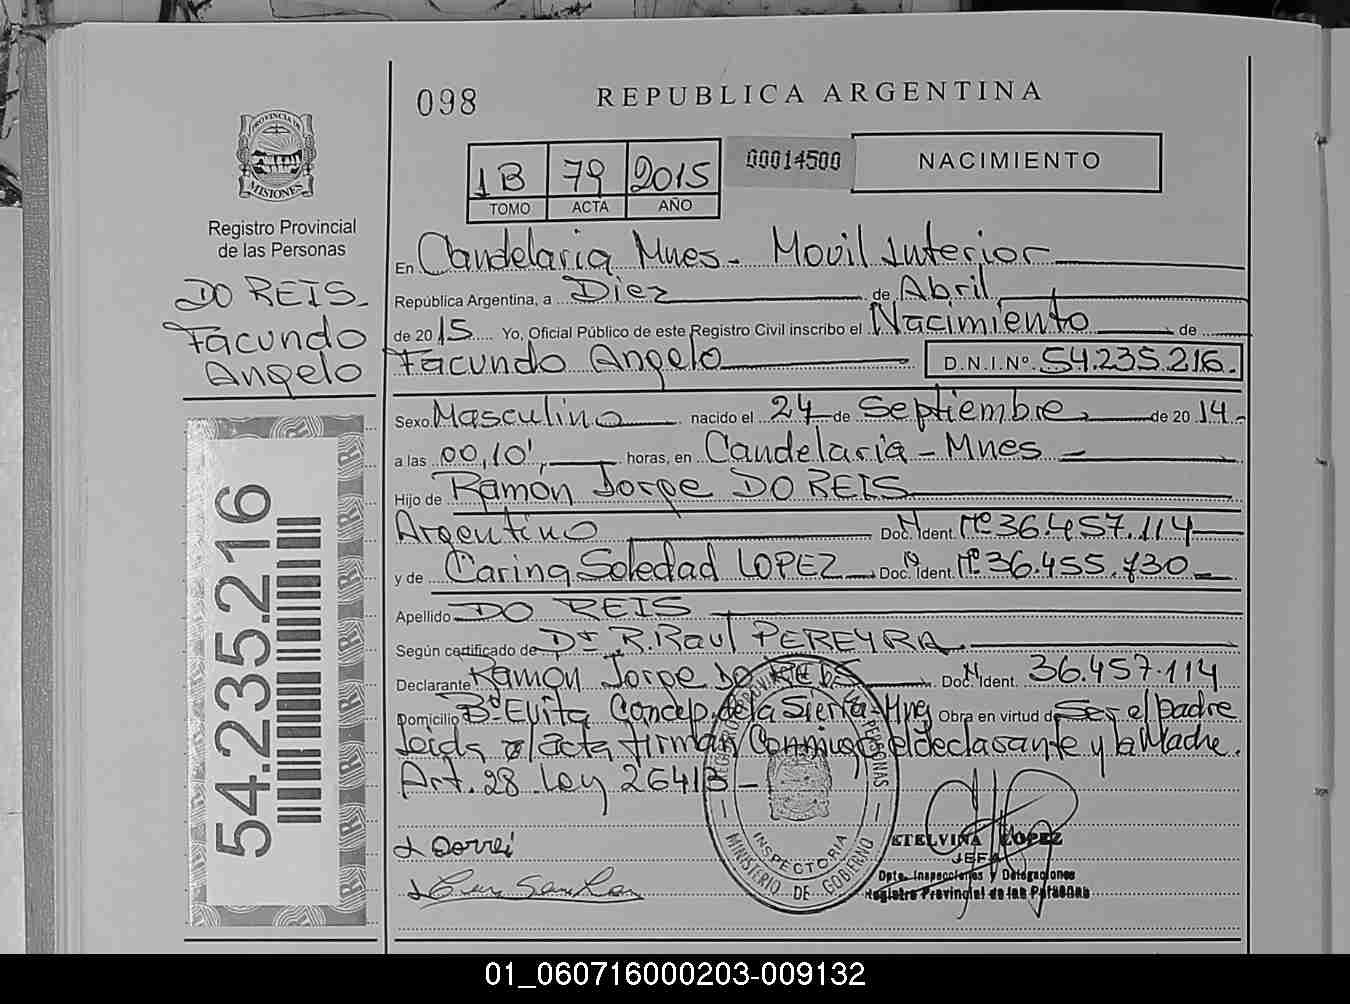 098
REPUBLICA ARGENTINA
PROVINCIA DE
MISIONES
Registro Provincial
de las Personas
1B 79 2015
TOMO ACTA AÑO
00014500
NACIMIENTO
DO REIS
Facundo
Angelo
54.235.216
En Candelaria Mnes - Movil Interior
República Argentina, a Diez de Abril
de 2015 Yo, Oficial Público de este Registro Civil inscribo el Nacimiento de
Facundo Angelo D.N.I.Nº 54.235.216.
Sexo Masculino nacido el 24 de Septiembre de 2014.-
a las 00,10', horas, en Candelaria - Mnes -
Hijo de Ramón Jorge DO REIS
Argentino Doc. Ident. Nº 36.457.114
y de Carina Soledad LOPEZ Doc. Ident. Nº 36.455.730
Apellido DO REIS
Según certificado de Dr R. Raul PEREYRA
Declarante Ramón Jorge DO REIS Doc. Ident. 36.457.114
Domicilio Bº Evita Concep. de la Sierra-Mnes Obra en virtud de Ser el padre
Leida el acta firman Conmigo el declarante y la Madre.
Art. 28 Ley 26413 -
REGISTRO PROVINCIAL DE LAS PERSONAS
INSPECTORIA
MINISTERIO DE GOBIERNO
ETELVINA LOPEZ
JEFA
Dpto. Inspecciones y Delegaciones
Registro Provincial de las Personas
01_060716000203-009132